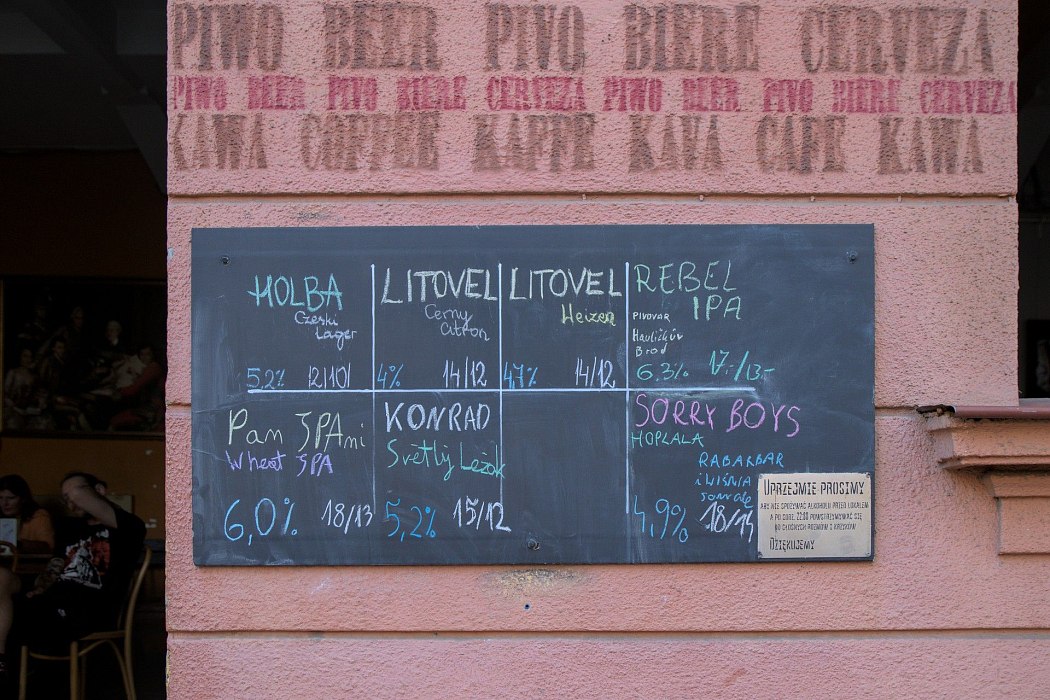 PIWO BEER PIVO BIERE CERVEZA
PIWO BEER PIVO BIERE CERVEZA PIWO BEER PIVO BIERE CERVEZA
KAWA COFFEE KAFFE KAVA CAFE KAWA
HOLBA
Czeski
Lager
5,2% 12/10
LITOVEL
Cerny
Citron
4% 14/12
LITOVEL
Heizen
4,7% 14/12
REBEL
IPA
PIVOVAR
Havlíčkův
Brod
6,3% 17,-/13,-
Pan IPAni
Wheat IPA
6,0% 18/13
KONRAD
Světlý Ležák
5,2% 15/12
SORRY BOYS
HOPLALA
RABARBAR
i WIŚNIA
4,9% 18/14
UPRZEJMIE PROSIMY
ABY NIE SPOŻYWAĆ ALKOHOLU PRZED LOKALEM
A PO GODZ. 22:00 POWSTRZYMYWAĆ SIĘ
OD GŁOŚNYCH ROZMÓW I KRZYKÓW
DZIĘKUJEMY